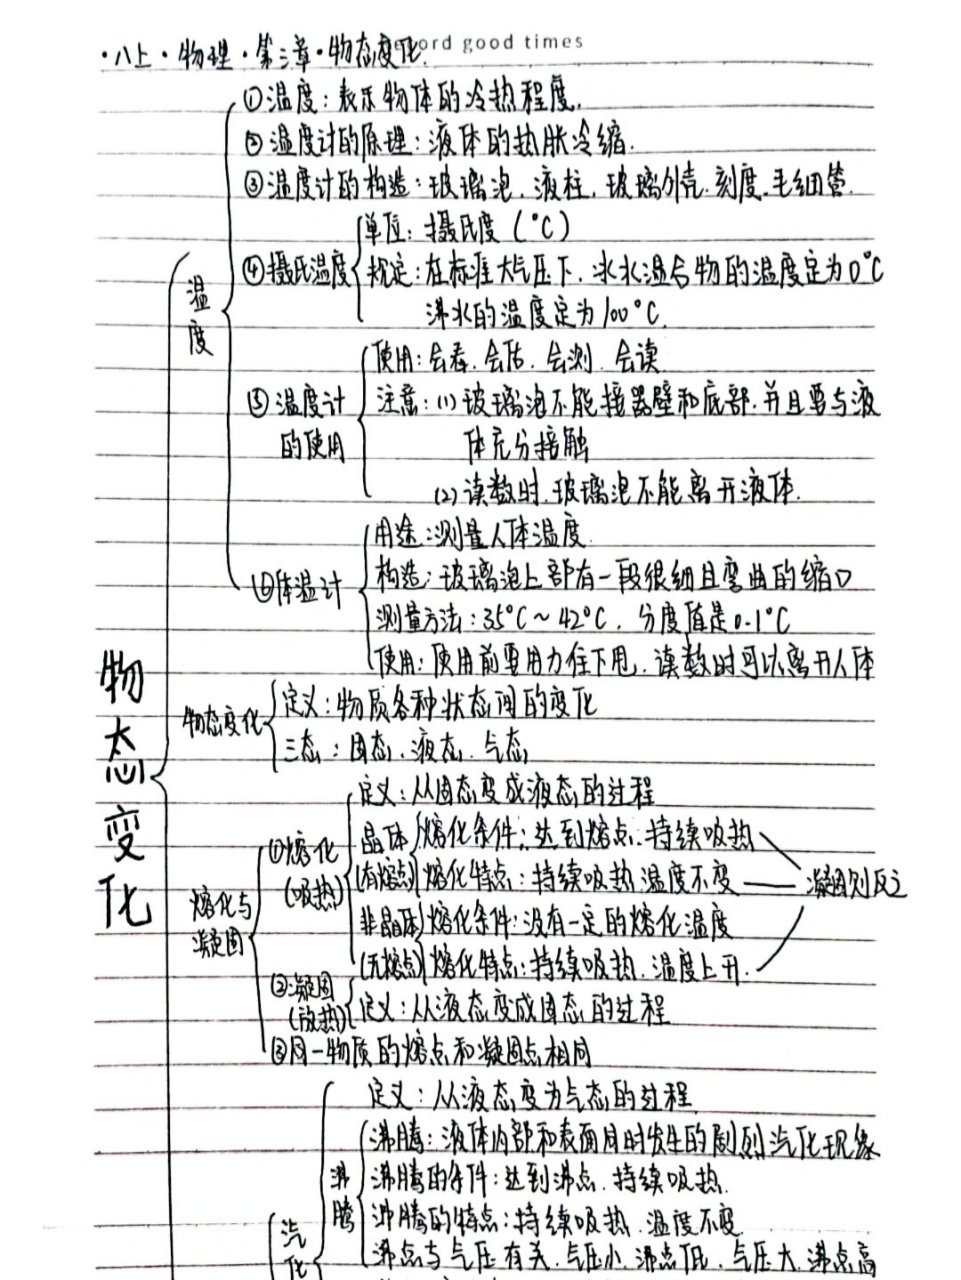 ·八上·物理·第三章·物态变化
ord good times
①温度：表示物体的冷热程度.
②温度计的原理：液体的热胀冷缩.
③温度计的构造：玻璃泡，液柱，玻璃外壳.刻度.毛细管.
单位：摄氏度（°C）
④摄氏温度
规定：在标准大气压下，冰水混合物的温度定为0°C
沸水的温度定为100°C.
温度
使用：会看.会估.会测.会读
⑤温度计的使用
注意：(1)玻璃泡不能接器壁和底部.并且要与液
体充分接触
(2)读数时.玻璃泡不能离开液体.
用途：测量人体温度.
⑥体温计
构造：玻璃泡上部有一段很细且弯曲的缩口
测量方法：35°C～42°C，分度值是0.1°C
使用：使用前要用力往下甩，读数时可以离开人体
物态变化
物态变化
定义：物质各种状态间的变化
三态：固态.液态.气态
熔化与凝固
①熔化(吸热)
定义：从固态变成液态的过程
晶体(有熔点)
熔化条件：达到熔点.持续吸热
熔化特点：持续吸热.温度不变
凝固则反之
非晶体(无熔点)
熔化条件：没有一定的熔化温度
熔化特点：持续吸热.温度上升.
②凝固(放热)
定义：从液态变成固态的过程
③同一物质的熔点和凝固点相同
汽化
定义：从液态变为气态的过程
沸腾
沸腾：液体内部和表面同时发生的剧烈汽化现象
沸腾的条件：达到沸点.持续吸热.
沸腾的特点：持续吸热.温度不变
沸点与气压有关.气压小.沸点低.气压大.沸点高